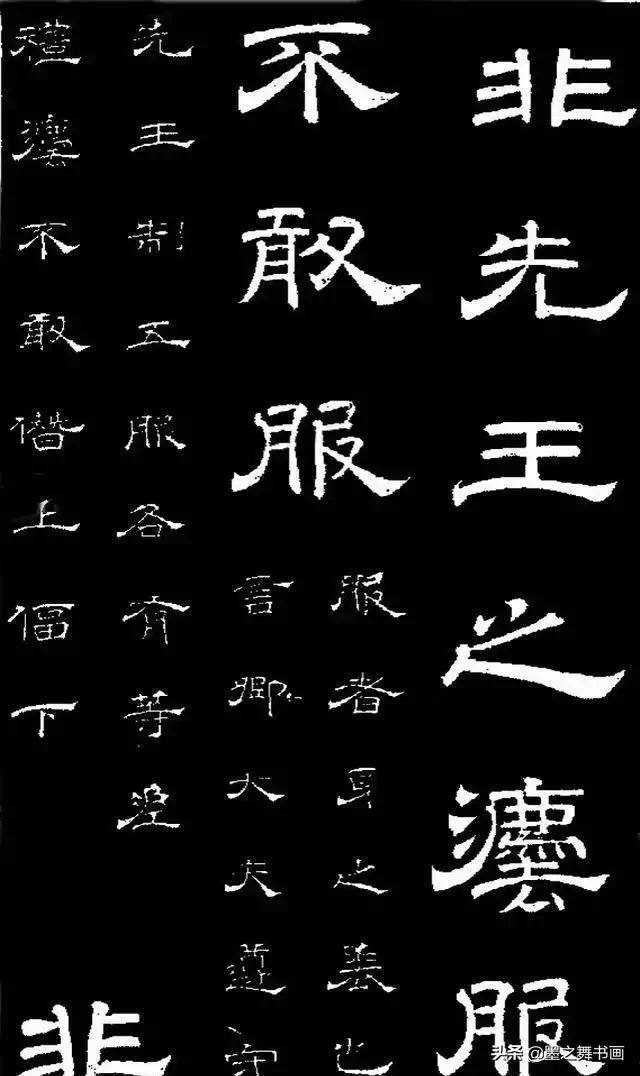 非先王之灋服
不敢服
服者身之表也
言卿大夫遵守
先王制五服各有等差
禮灋不敢僭上偪下
非
头条 @墨之舞书画